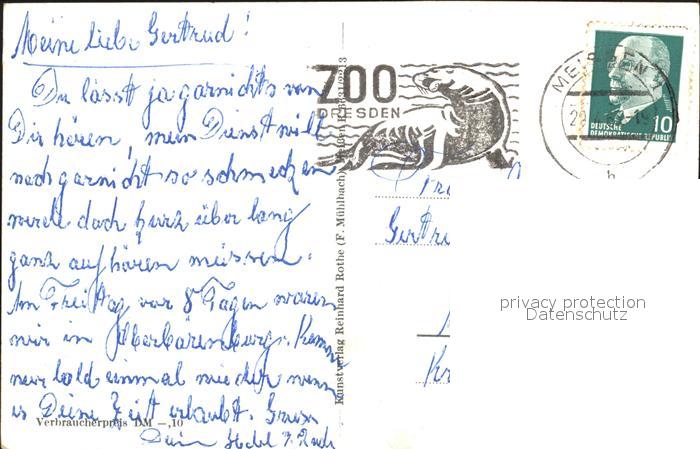 Meine liebe Gertrud!
Du lässt ja garnichts von
Dir hören, mein Dienst will
noch garnicht so schmecken
werde doch kurz über lang
ganz aufhören müssen.
Am Freitag vor 8 Tagen waren
wir in Oberbärenburg. Komme
nur bald einmal wieder wenn
es Deine Zeit erlaubt.
Dein
Verbraucherpreis DM —,10
Kunstverlag Reinhard Rothe (F. Mühlbach)
ZOO
DRESDEN
MEISSEN 1
10
DEUTSCHE
DEMOKRATISCHE REPUBLIK
b
privacy protection
Datenschutz